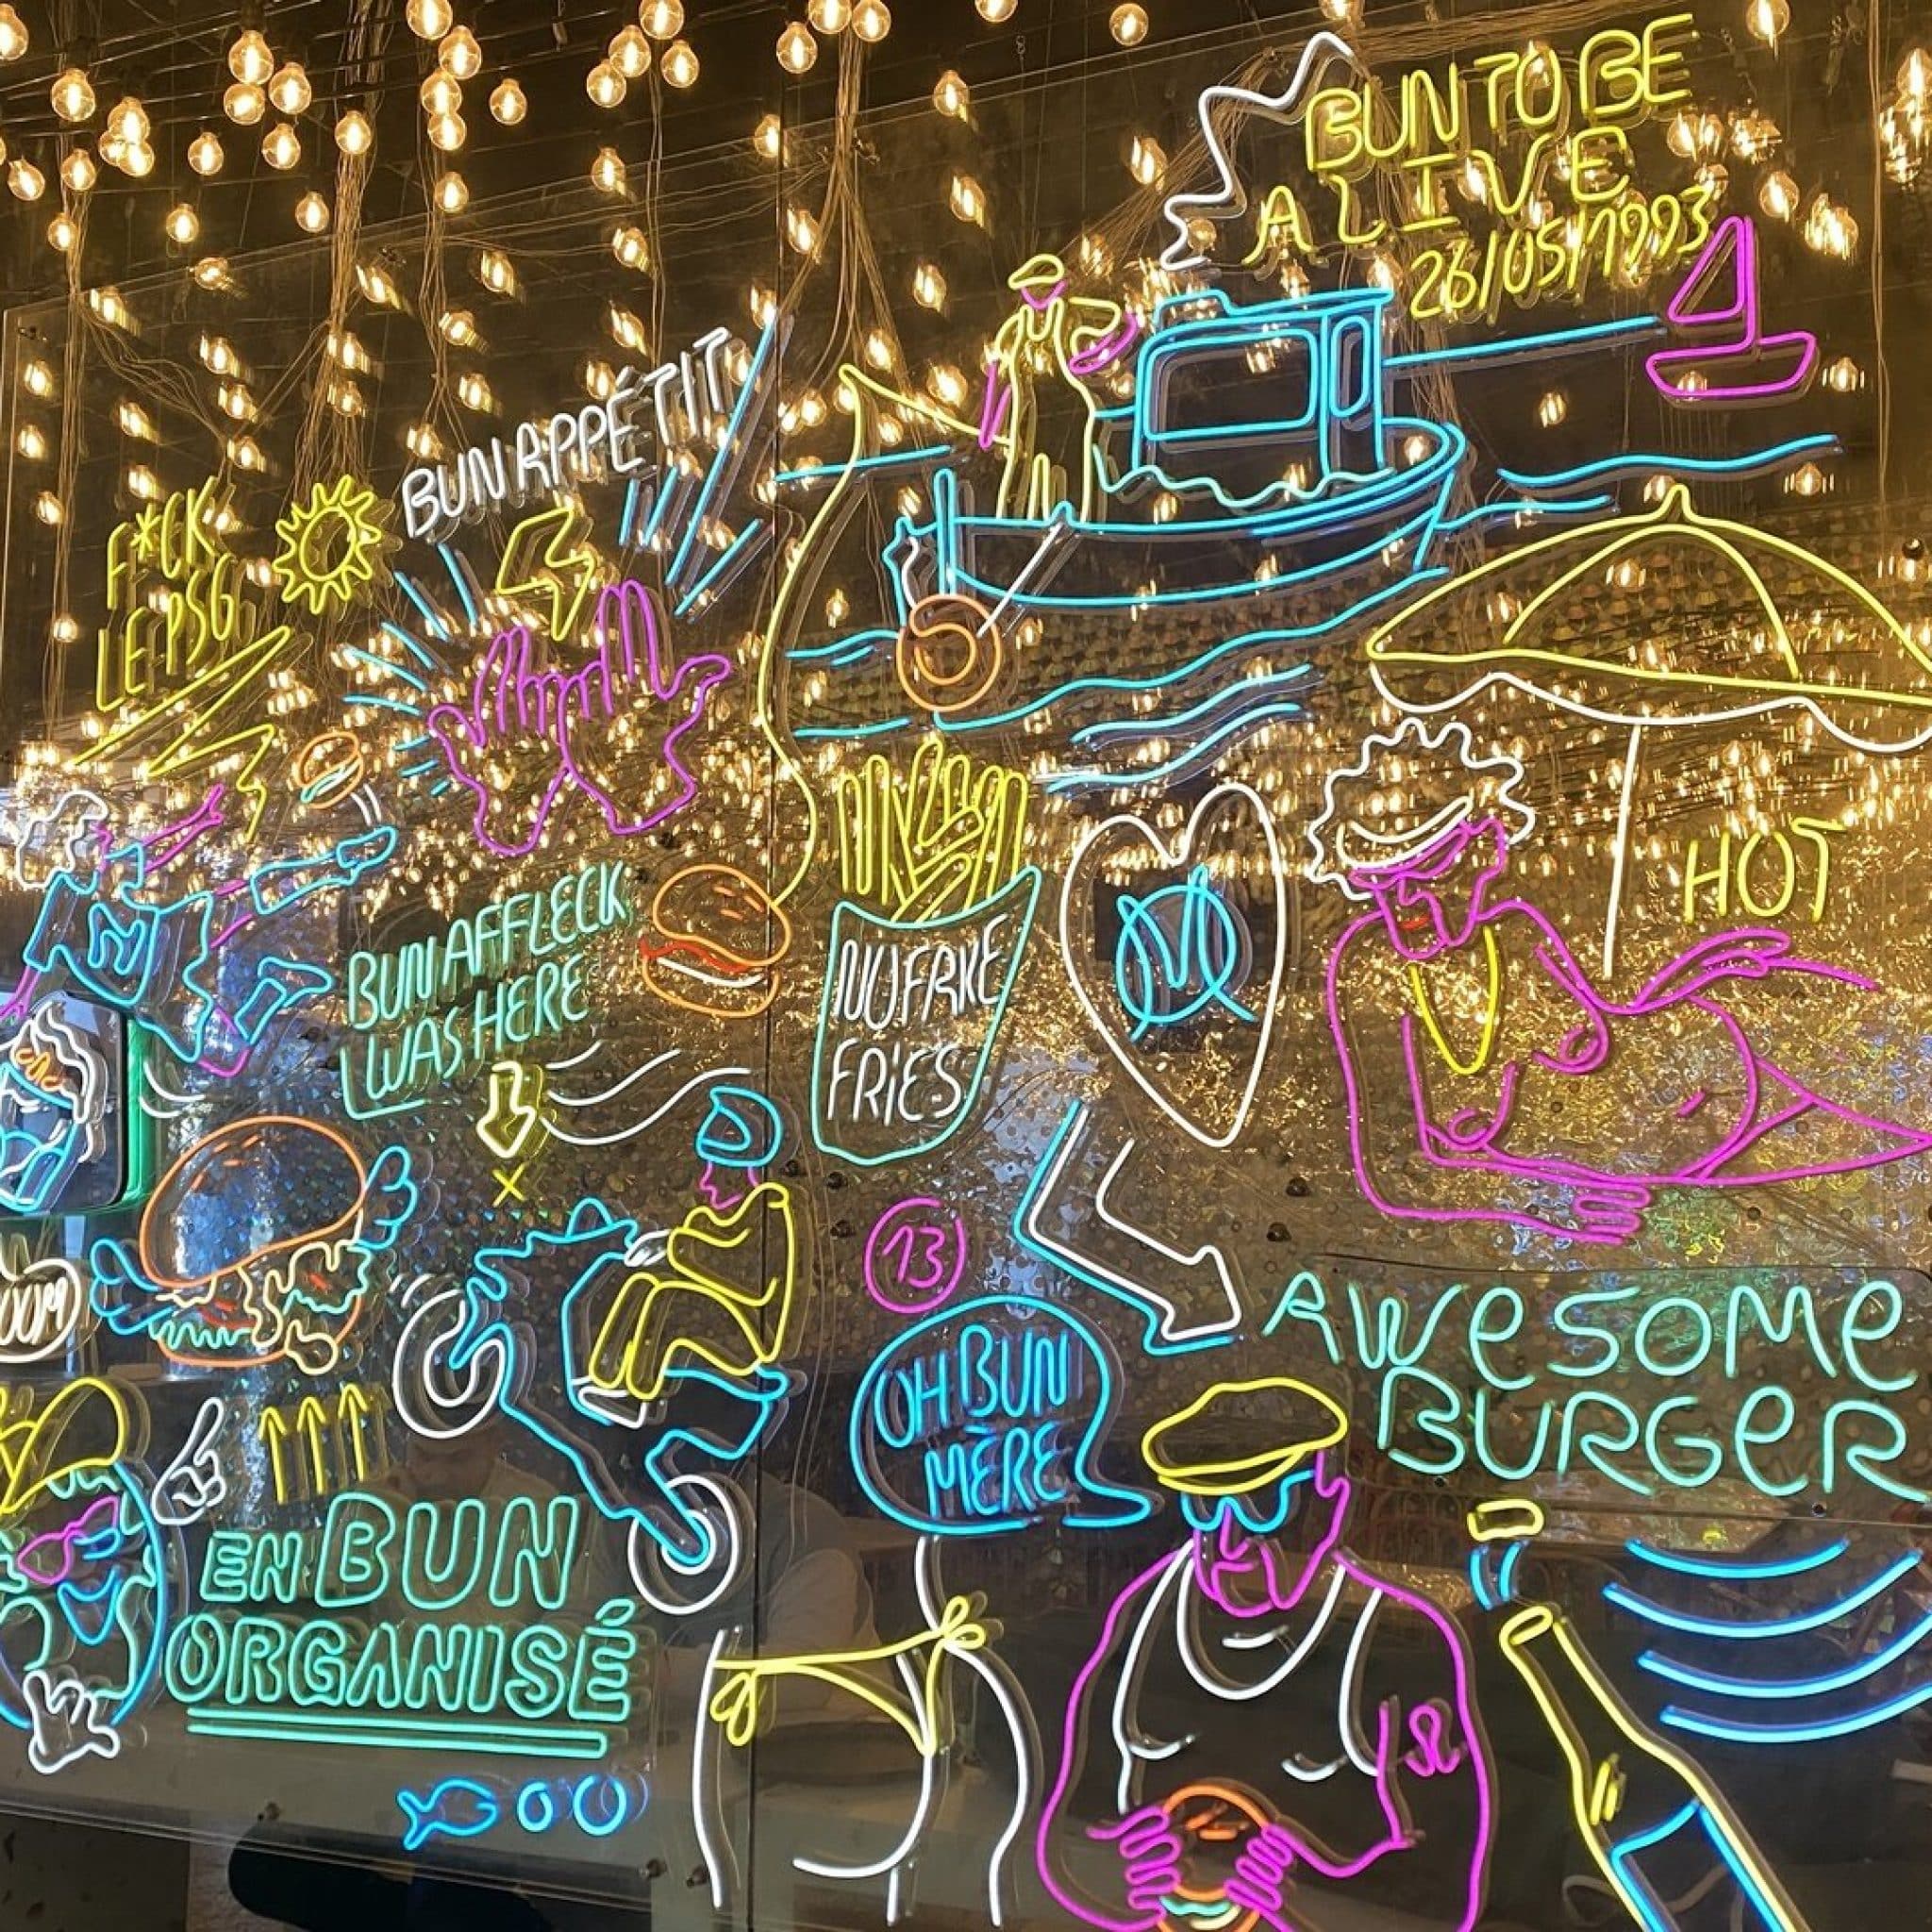 BUN TO BE
ALIVE
26/05/1993
BUN APPÉTIT
F*CK
LE PSG
HOT
BUN AFFLECK
WAS HERE
NO FAKE
FRIES
M
13
AWESOME
BURGER
OH BUN
MÈRE
EN BUN
ORGANISÉ